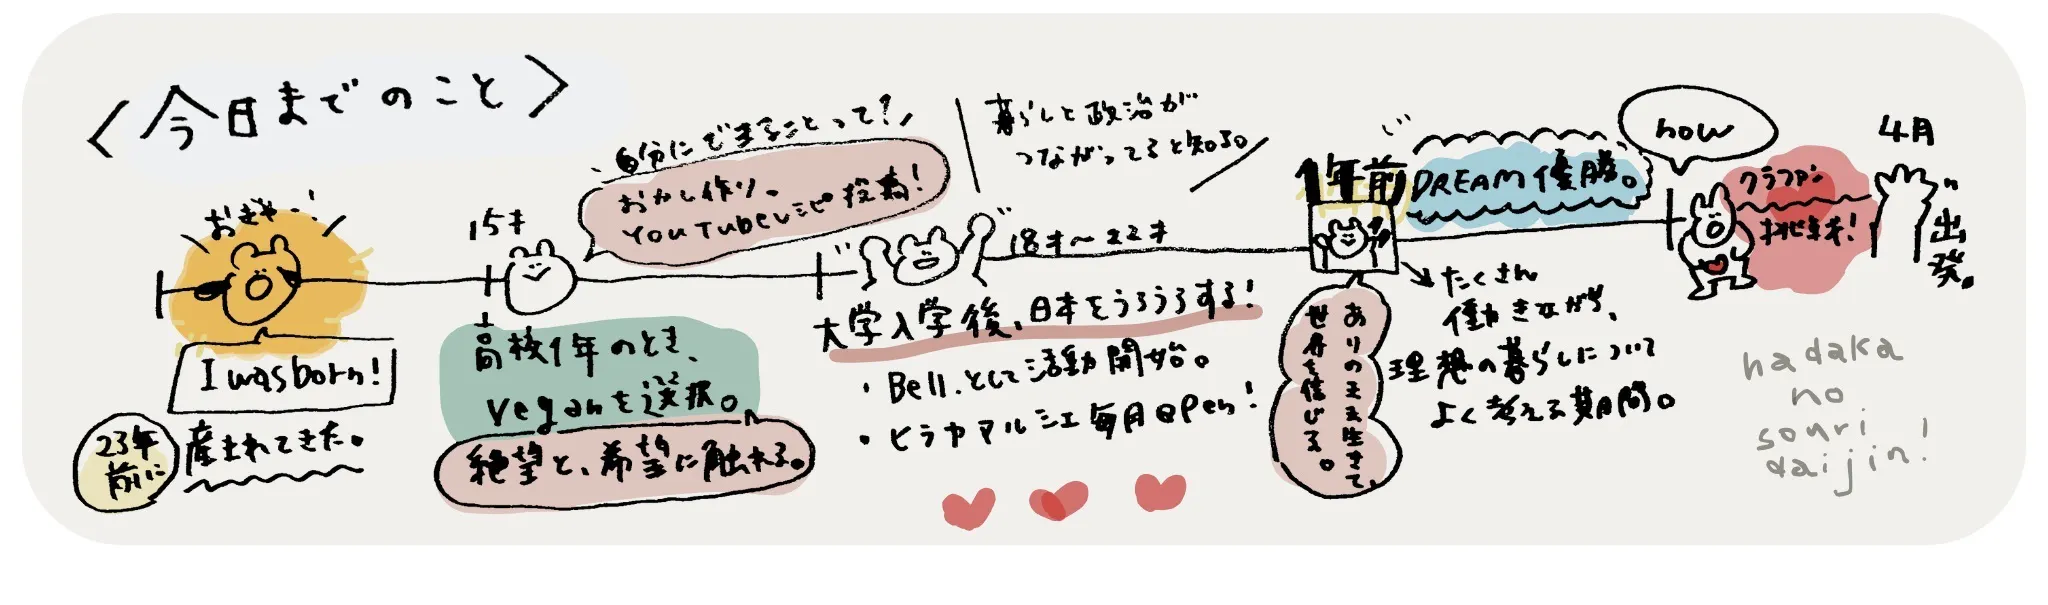 〈今日までのこと〉
おぎゃー!
I was born!
23年
前に
産まれてきた。
15才
自分にできることって?
おかし作り、
YouTubeレシピ投稿!
高校1年のとき、
veganを選択。
絶望と、希望に触れる。
暮らしと政治が
つながってると知る。
18才〜22才
大学入学後、日本をうろうろする!
・Bell.として活動開始。
・ヒラヤマルシェ毎月open!
1年前
DREAM優勝。
ありのまま生きて、
世界を信じる。
たくさん
働きながら、
理想の暮らしについて
よく考える期間。
now
クラファン
挑戦!
4月
出発。
hadaka
no
souri
daijin!